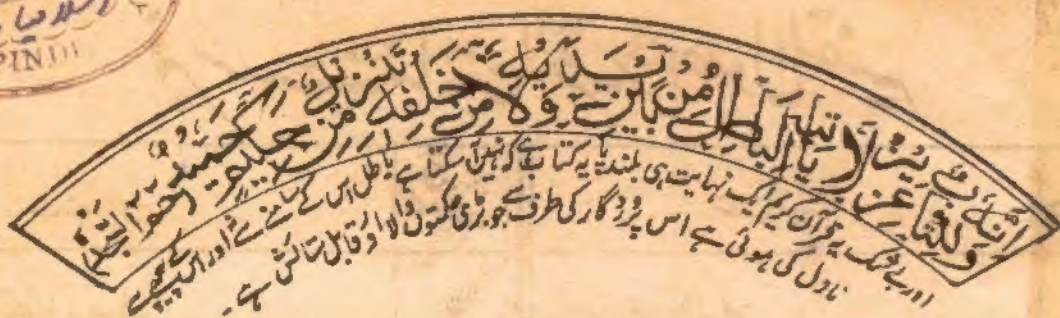 PINDI
وَاِنَّهٗ لَكِتٰبٌ عَزِيْزٌ لَّا يَاْتِيْهِ الْبَاطِلُ مِنْۢ بَيْنِ يَدَيْهِ وَلَا مِنْ خَلْفِهٖ تَنْزِيْلٌ مِّنْ حَكِيْمٍ حَمِيْدٍ حٰمٓ السجدة
اور بے شک یہ قرآن کریم ایک نہایت ہی بلند پایہ کتاب ہے کہ نہیں آسکتا ہے باطل اس کے سامنے سے اور اس کے پیچھے سے
نازل کی ہوئی ہے اس پروردگار کی طرف سے جو بڑی حکمتوں والا اور قابل ستائش ہے۔